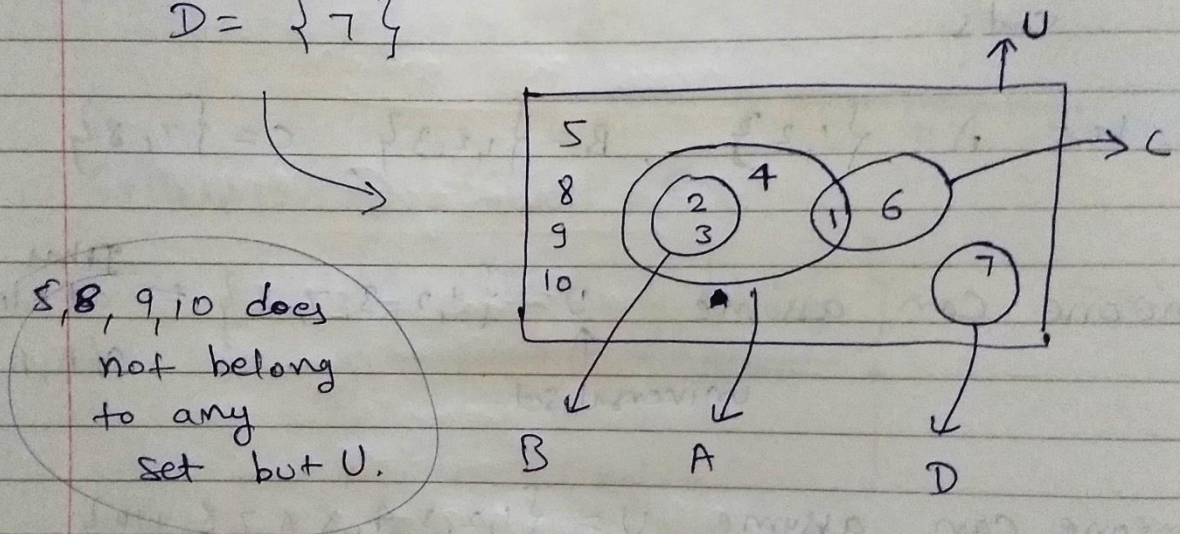 D = {7}
U
5
C
8
4
2
1
6
9
3
7
10.
5,8, 9,10 does
not belong
to any
set but U.
B
A
D